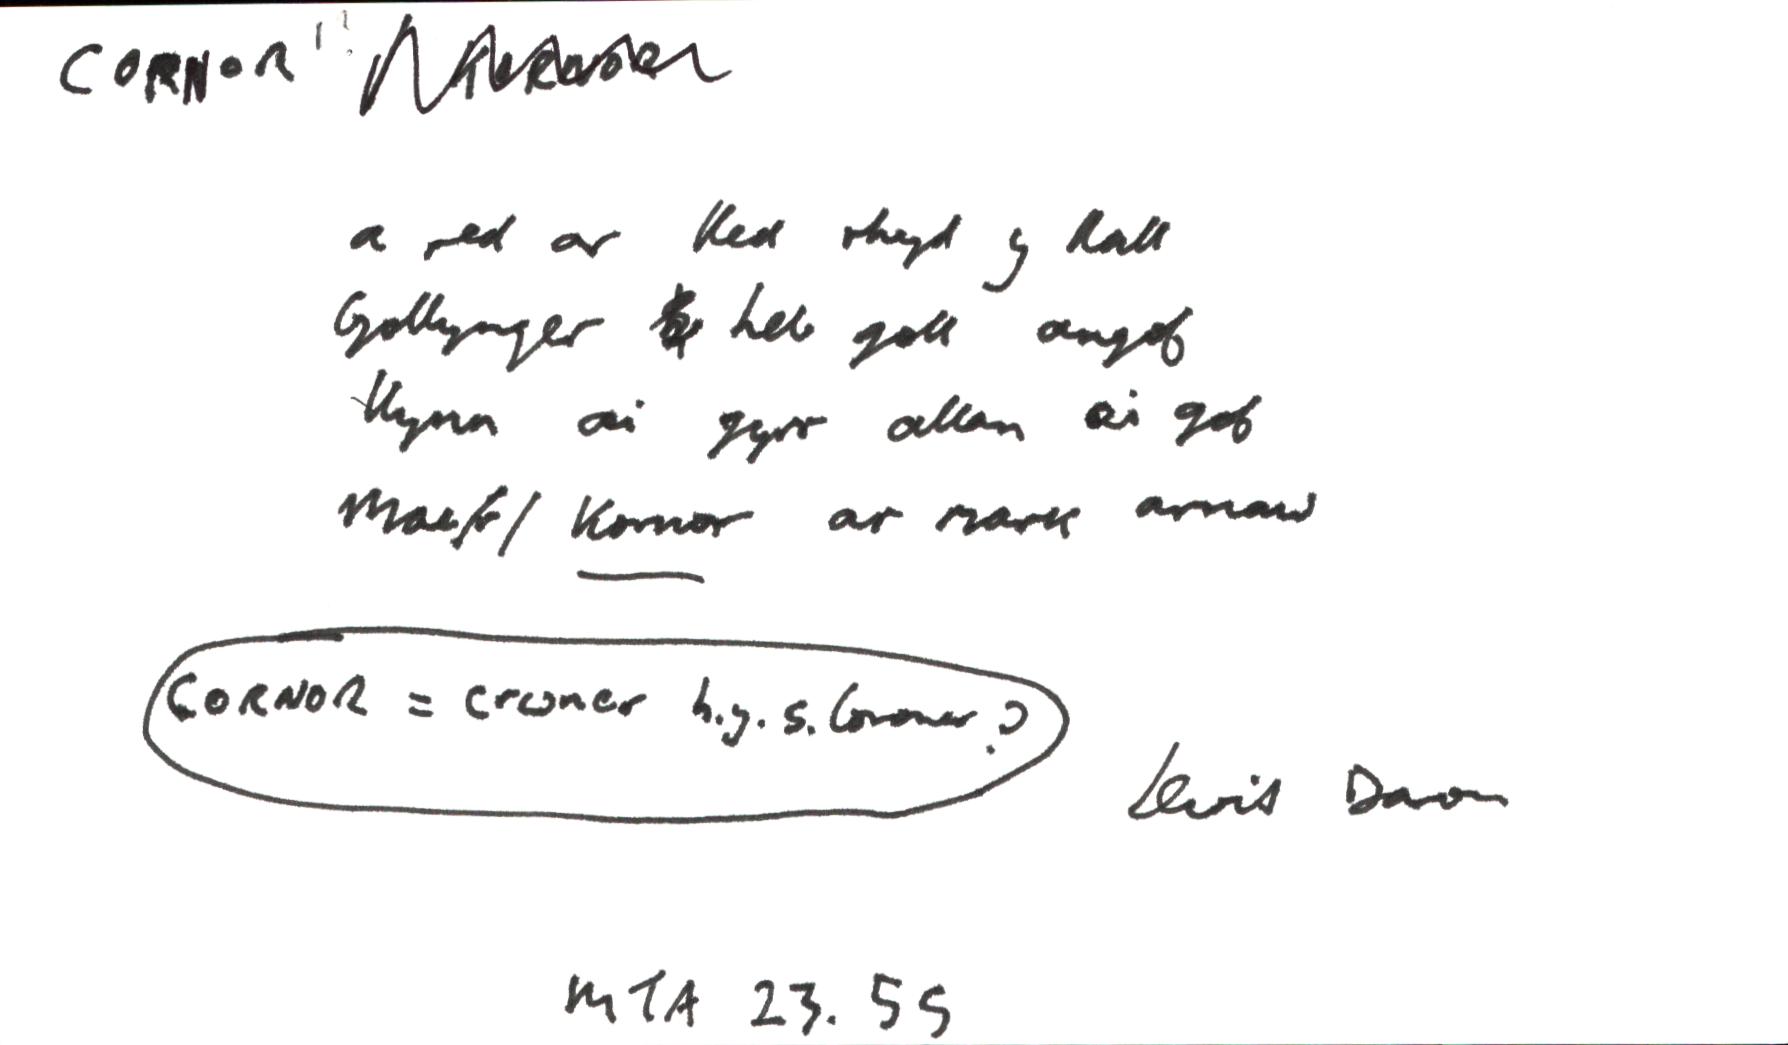 CORNOR
a red ar lled rhyd y kall
Gollynger heb goll angof
llyna ai gyrr allan ai gof
Maest/ Kornor ar mark arnaw
CORNOR = crwner h.y. s. Coroner?
Lewis Daron
MTA 23.55